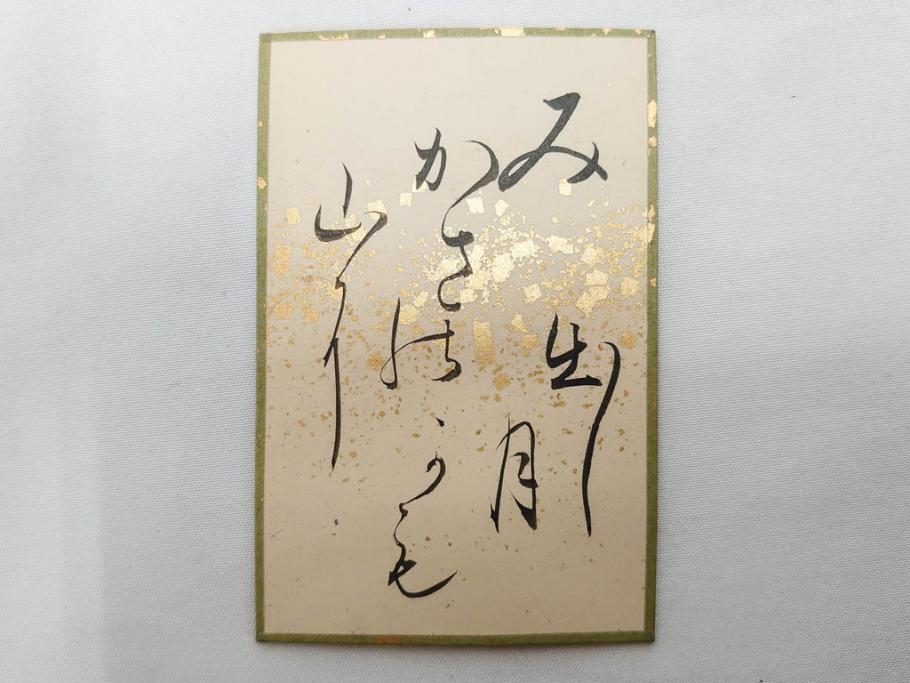 み
かさの
山に
出し
月
かも